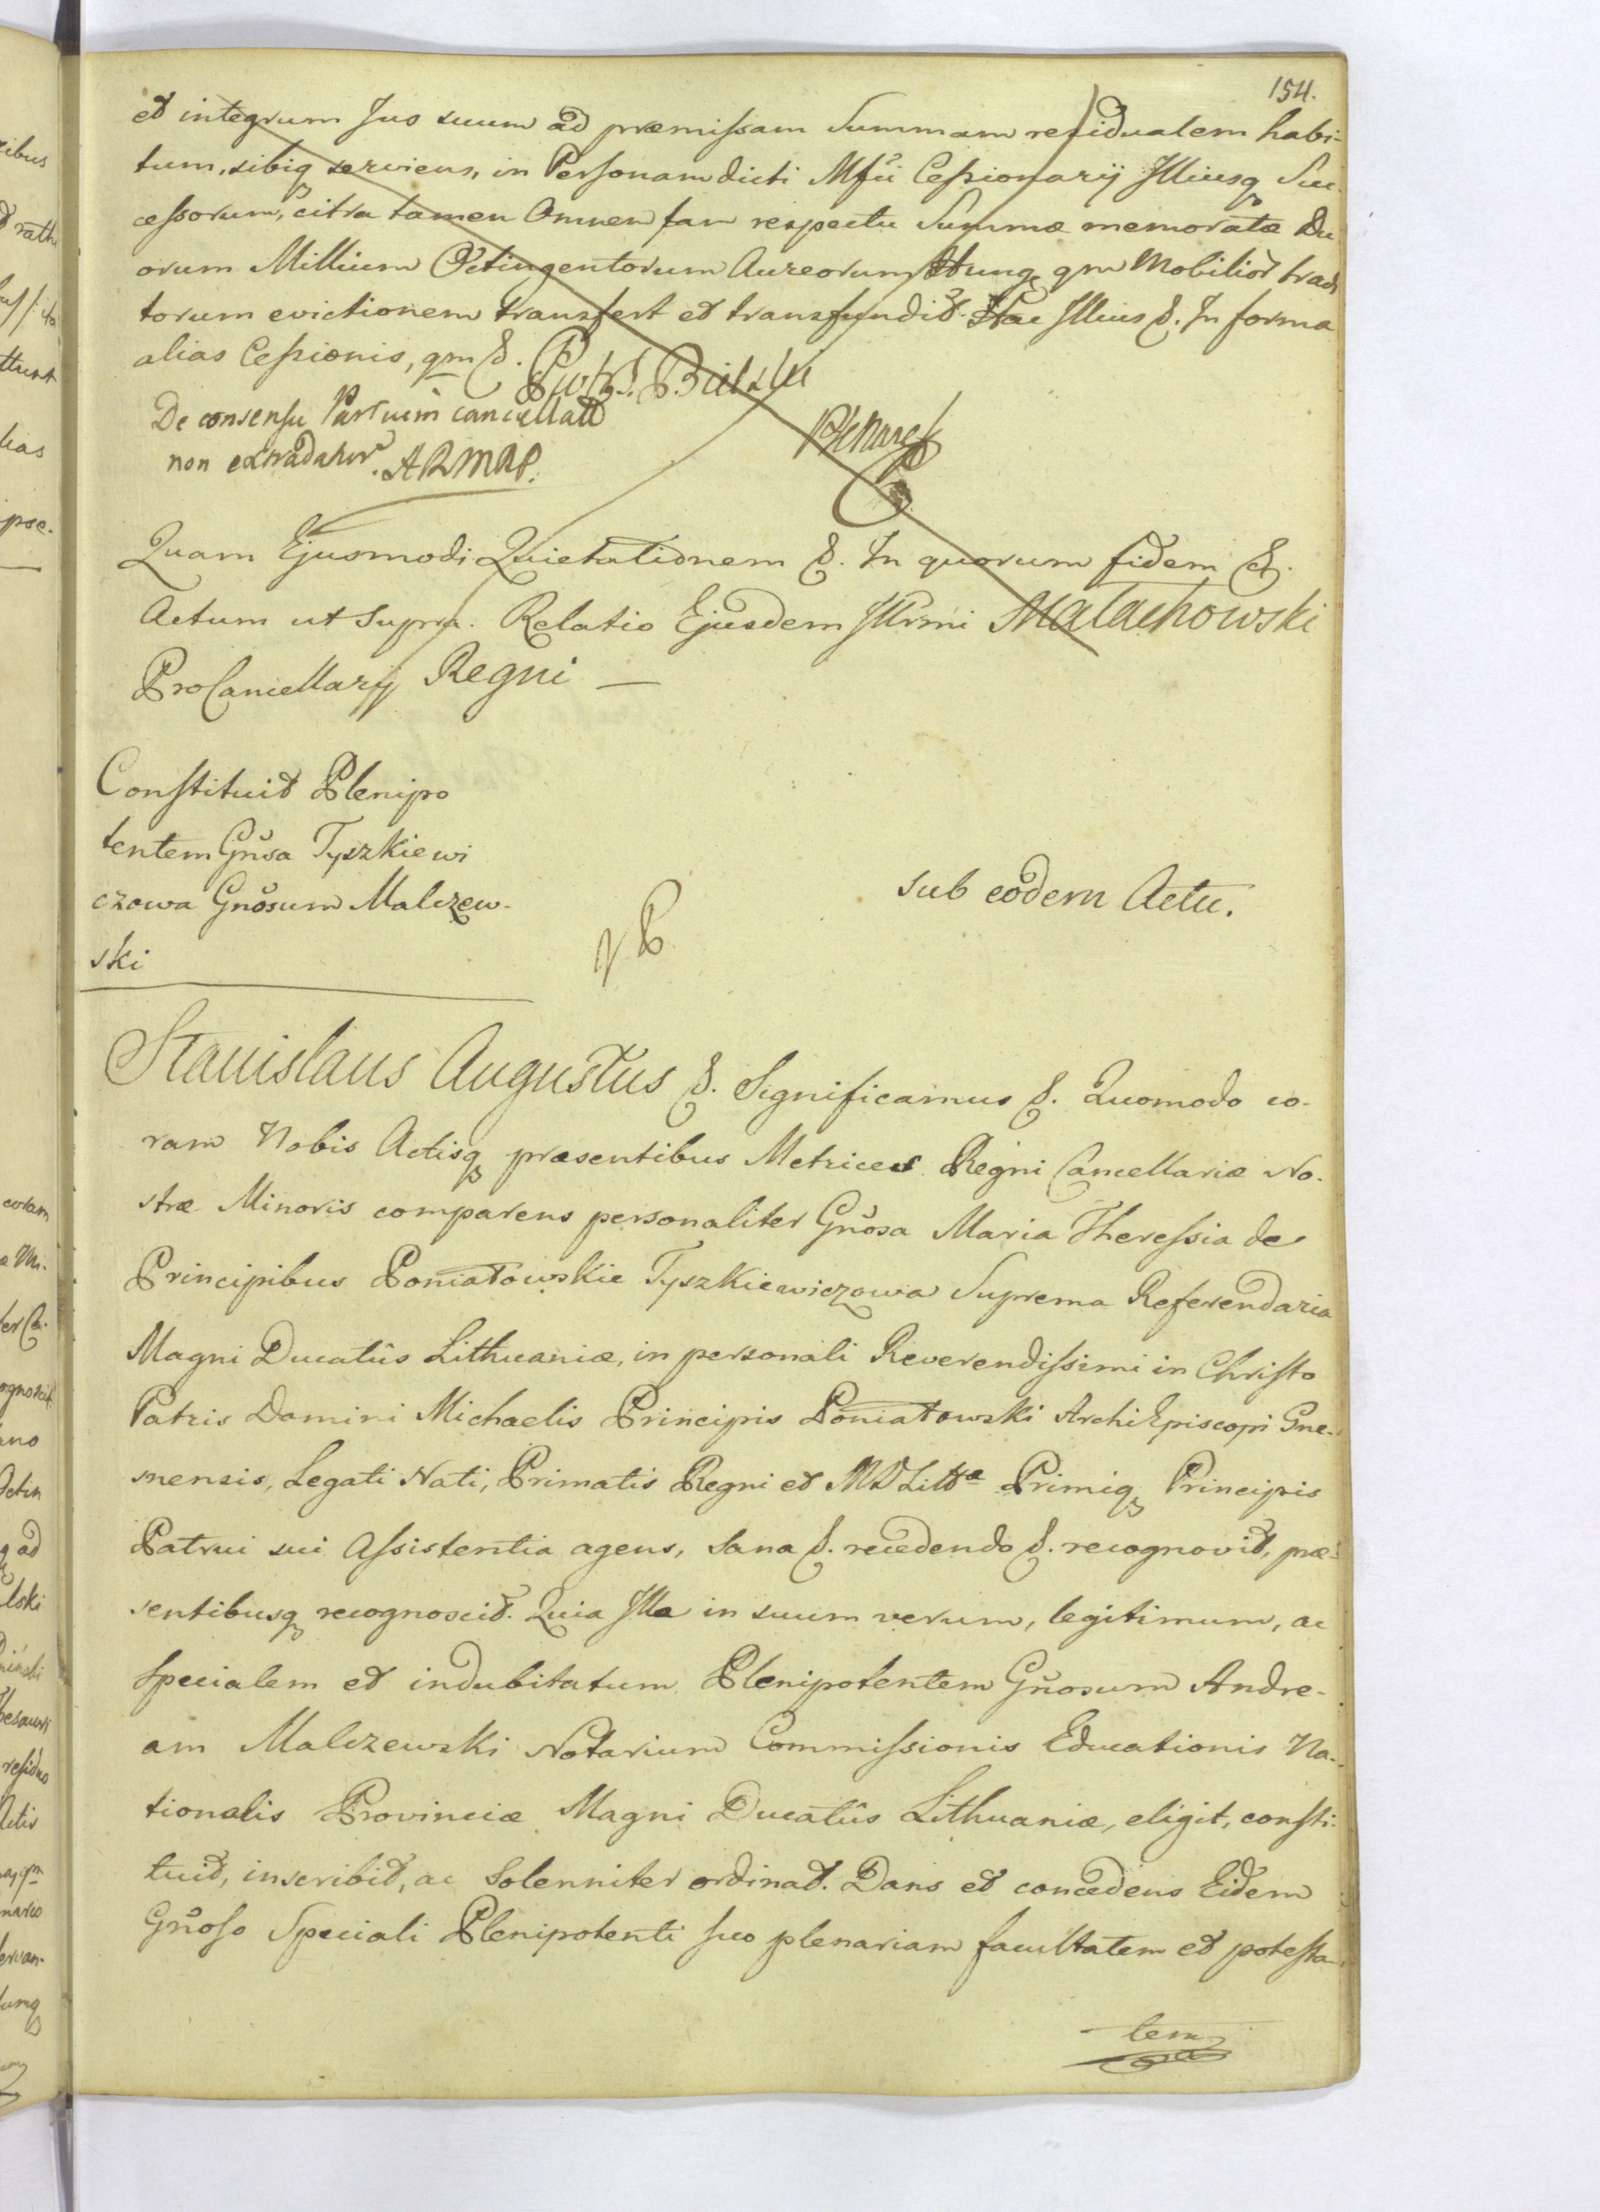 154.
et integrum Jus suum ad præmissam Summam residualem habi-
tum, sibiq serviens, in Personam dicti Mfci Cessionarij Illiusq Suc-
cessorum, citra tamen Omnem tam respectu Summæ memoratæ Du
orum Millium Octingentorum Aureorum Hung qm Mobilior tradi
torum evictionem transfert et transfundit. Hac Illius &. In forma
alias Cessionis, qm &.
De consensu Partium cancellatt
non extradatur. ARMRP.
Quam Ejusmodi Quietationem &. In quorum fidem &.
Actum ut supra. Relatio Ejusdem Illrmi Małachowski
ProCancellarij Regni —
Constituit Plenipo
tentem Gnosa Tyszkiewi
czowa Gnosum Malczew-
ski
sub eodem Actu.
Stanislaus Augustus &. Significamus &. Quomodo co-
ram Nobis Actisq præsentibus Metrices Regni Cancellariæ No-
stræ Minoris comparens personaliter Gnosa Maria Theressia de
Principibus Poniatowskie Tyszkiewiczowa Suprema Referendaria
Magni Ducatûs Lithuaniæ, in personali Reverendissimi in Christo
Patris Domini Michaelis Principis Poniatowski ArchiEpiscopi Gne-
snensis, Legati Nati, Primatis Regni et MDLittæ Primiq Principis
Patrui sui Assistentia agens, sana &. recedendo &. recognovit, præ-
sentibusq recognoscit. Quia Illa in suum verum, legitimum, ac
specialem et indubitatum Plenipotentem Gnosum Andre-
am Malczewski Notarium Commissionis Educationis Na-
tionalis Provinciæ Magni Ducatûs Lithuaniæ, eligit, consti-
tuit, inscribit, ac solenniter ordinat. Dans et concedens Eidem
Gnoso Speciali Plenipotenti suo plenariam facultatem et potesta-
tem